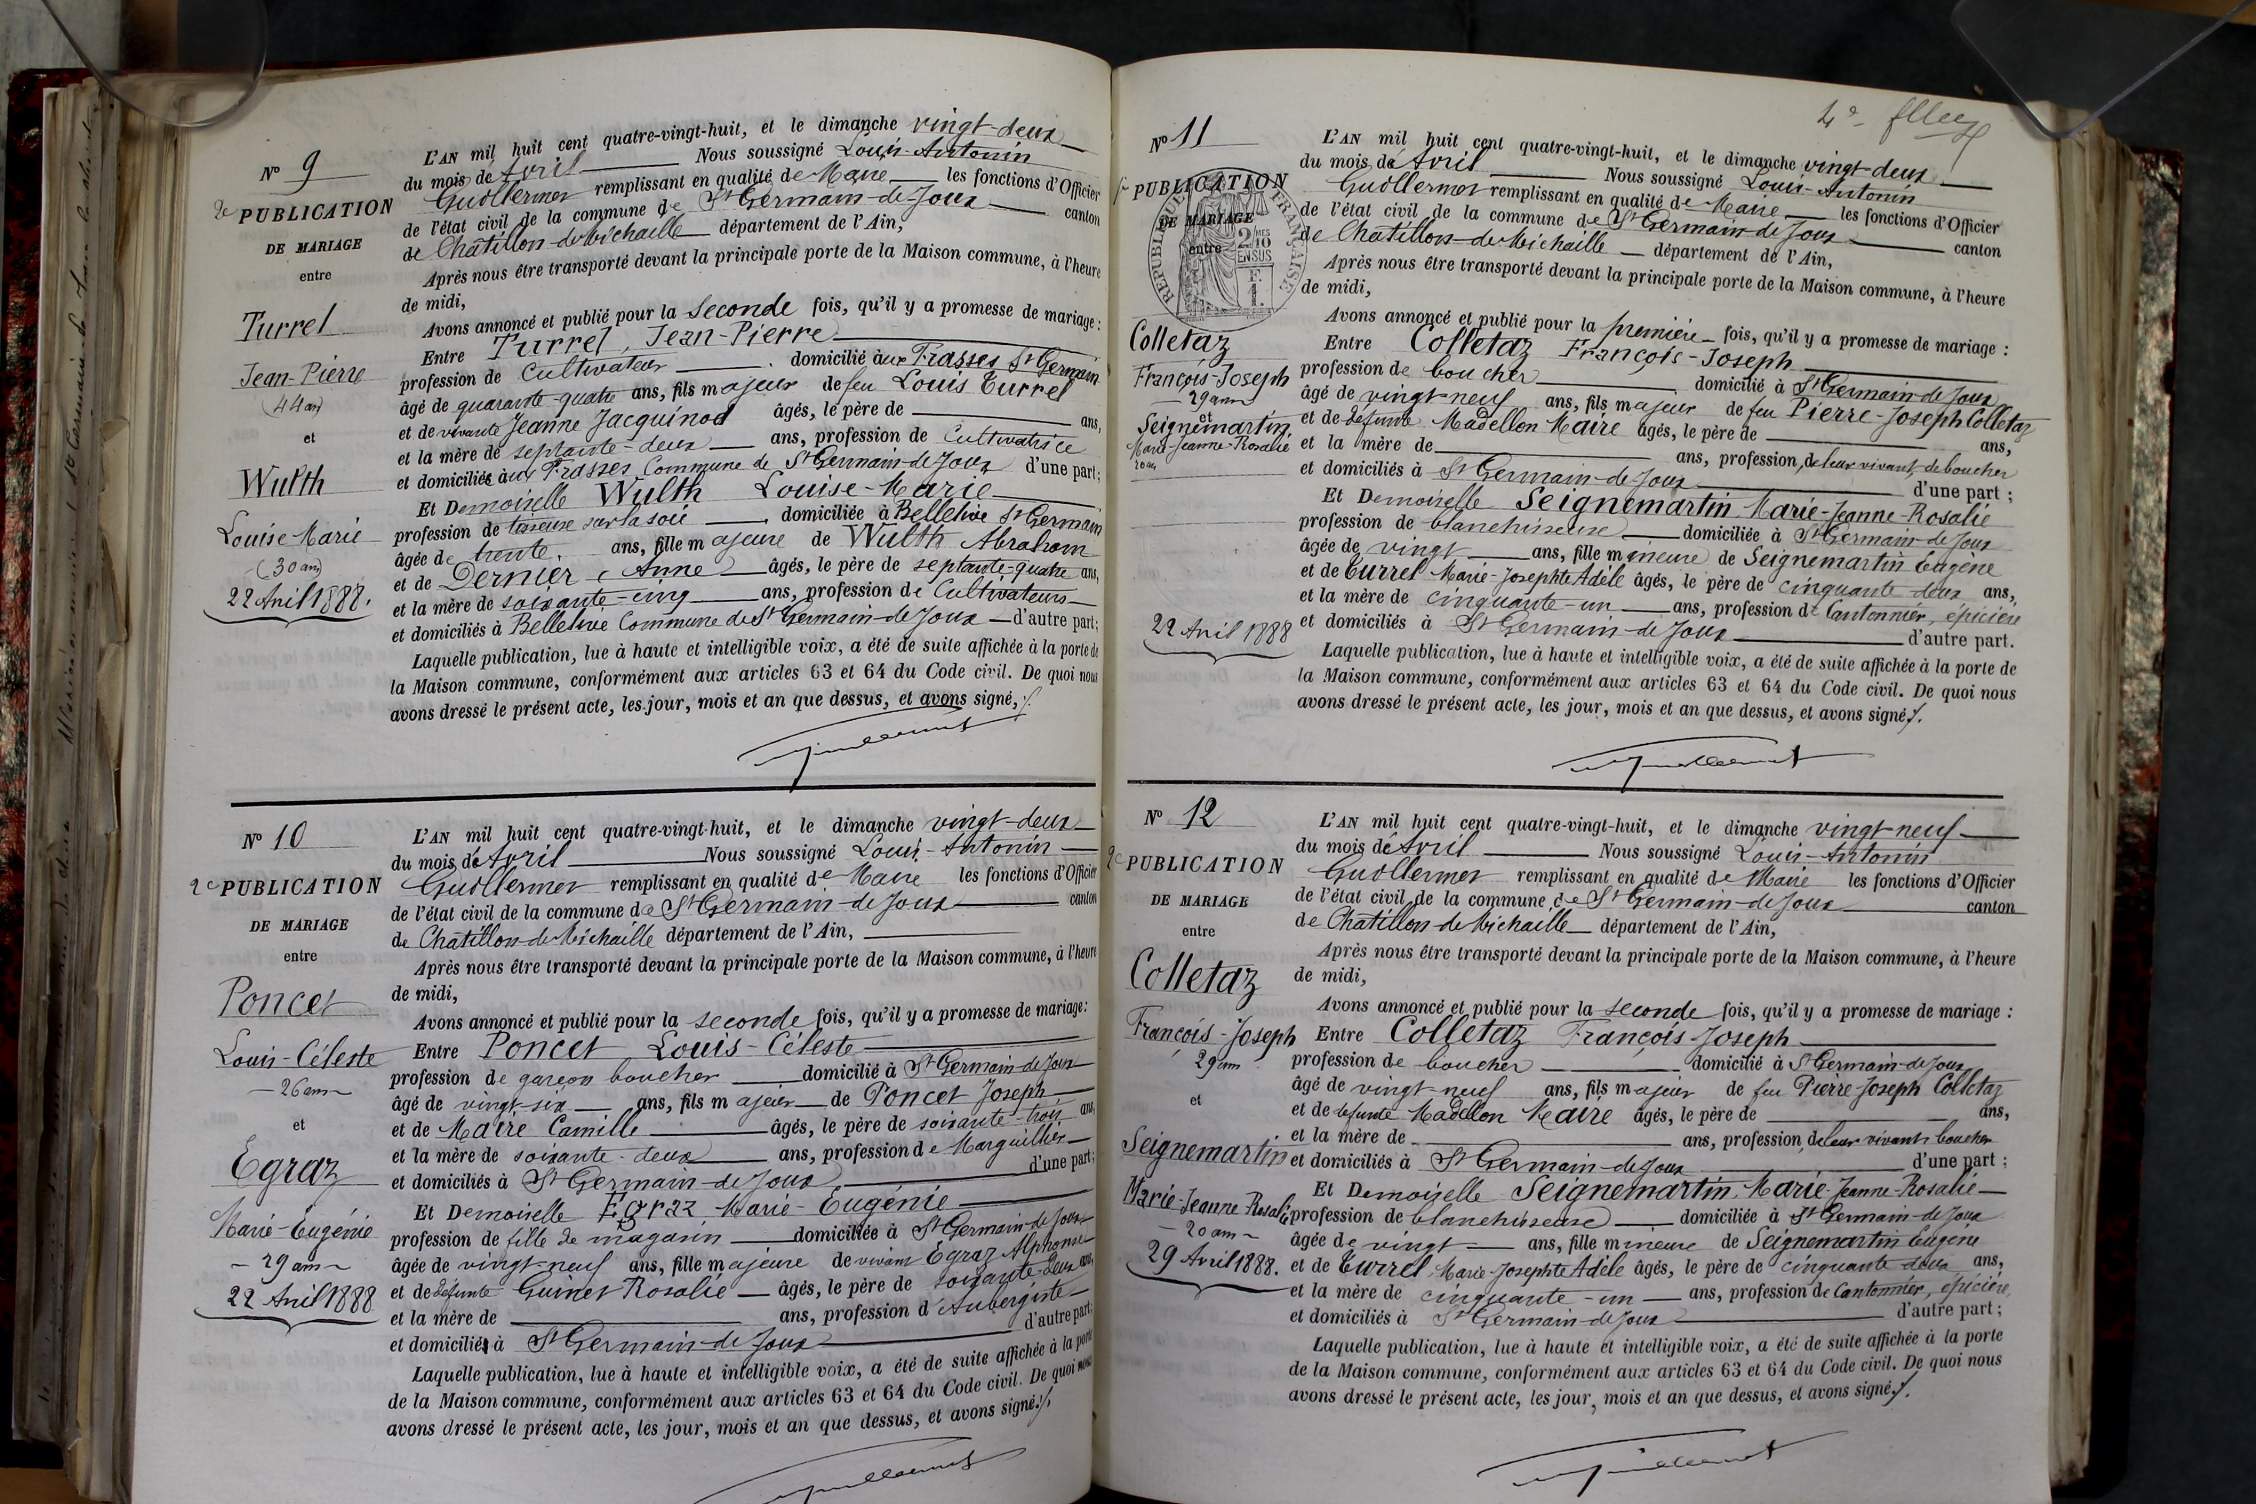 Nº 9
2e PUBLICATION
DE MARIAGE
entre
Turrel
Jean-Pierre
(44 ans)
et
Wulth
Louise-Marie
(30 ans)
22 Avril 1888.
L'AN mil huit cent quatre-vingt-huit, et le dimanche vingt-deux
du mois de Avril Nous soussigné Louis-Antonin
Guollermet remplissant en qualité de Maire les fonctions d'Officier
de l'état civil de la commune de St Germain-de-Joux canton
de Chatillon-de-Michaille département de l'Ain,
Après nous être transporté devant la principale porte de la Maison commune, à l'heure
de midi,
Avons annoncé et publié pour la seconde fois, qu'il y a promesse de mariage :
Entre Turrel, Jean-Pierre
profession de Cultivateur domicilié aux Frasses St Germain
âgé de quarante-quatre ans, fils majeur de feu Louis Turrel
et de vivante Jeanne Jacquinod âgés, le père de ans,
et la mère de septante-deux ans, profession de Cultivatrice
et domiciliés aux Frasses Commune de St Germain-de-Joux d'une part ;
Et Demoiselle Wulth Louise-Marie
profession de tisseuse sur la soie domiciliée à Bellelive St Germain
âgée de trente. ans, fille majeure de Wulth Abraham
et de Dernier, Anne âgés, le père de septante-quatre ans,
et la mère de soixante-cinq ans, profession de Cultivateurs
et domiciliés à Bellelive Commune de St Germain-de-Joux d'autre part ;
Laquelle publication, lue à haute et intelligible voix, a été de suite affichée à la porte de
la Maison commune, conformément aux articles 63 et 64 du Code civil. De quoi nous
avons dressé le présent acte, les jour, mois et an que dessus, et avons signé,
Guollermet
Nº 10
2e PUBLICATION
DE MARIAGE
entre
Poncet
Louis-Céleste
26 ans
et
Egraz
Marie-Eugénie
29 ans
22 Avril 1888
L'AN mil huit cent quatre-vingt-huit, et le dimanche vingt-deux
du mois de Avril Nous soussigné Louis-Antonin
Guollermet remplissant en qualité de Maire les fonctions d'Officier
de l'état civil de la commune de St Germain-de-Joux canton
de Chatillon-de-Michaille département de l'Ain,
Après nous être transporté devant la principale porte de la Maison commune, à l'heure
de midi,
Avons annoncé et publié pour la seconde fois, qu'il y a promesse de mariage :
Entre Poncet Louis-Céleste
profession de garçon boucher domicilié à St Germain-de-Joux
âgé de vingt-six ans, fils majeur de Poncet Joseph
et de Maire Camille âgés, le père de soixante-trois ans,
et la mère de soixante-deux ans, profession de Marguillier
et domiciliés à St Germain-de-Joux d'une part ;
Et Demoiselle Egraz Marie-Eugénie
profession de fille de magasin domiciliée à St Germain-de-Joux
âgée de vingt-neuf ans, fille majeure de vivant Egraz Alphonse
et de défunte Guinet Rosalie âgés, le père de soixante-deux ans,
et la mère de ans, profession d'Aubergiste
et domiciliés à St Germain-de-Joux d'autre part ;
Laquelle publication, lue à haute et intelligible voix, a été de suite affichée à la porte
de la Maison commune, conformément aux articles 63 et 64 du Code civil. De quoi nous
avons dressé le présent acte, les jour, mois et an que dessus, et avons signé.
Guollermet
4e
Nº 11
PUBLICATION
DE MARIAGE
entre
RÉPUBLIQUE FRANÇAISE
2 MES 10
EN SUS
F. 1.
Colletaz
François-Joseph
29 ans
et
Seignemartin
Marie-Jeanne-Rosalie
20 ans
22 Avril 1888
L'AN mil huit cent quatre-vingt-huit, et le dimanche vingt-deux
du mois de Avril Nous soussigné Louis-Antonin
Guollermet remplissant en qualité de Maire les fonctions d'Officier
de l'état civil de la commune de St Germain-de-Joux canton
de Chatillon-de-Michaille département de l'Ain,
Après nous être transporté devant la principale porte de la Maison commune, à l'heure
de midi,
Avons annoncé et publié pour la première fois, qu'il y a promesse de mariage :
Entre Colletaz François-Joseph
profession de boucher domicilié à St Germain-de-Joux
âgé de vingt-neuf ans, fils majeur de feu Pierre-Joseph Colletaz
et de défunte Madellon Maire âgés, le père de ans,
et la mère de ans, profession, de leur vivant, de boucher
et domiciliés à St Germain-de-Joux d'une part ;
Et Demoiselle Seignemartin Marie-Jeanne-Rosalie
profession de blanchisseuse domiciliée à St Germain-de-Joux
âgée de vingt ans, fille mineure de Seignemartin Eugène
et de Turrel Marie-Josephte Adèle âgés, le père de cinquante-deux ans,
et la mère de cinquante-un ans, profession de Cantonnier, épicière
et domiciliés à St Germain-de-Joux d'autre part.
Laquelle publication, lue à haute et intelligible voix, a été de suite affichée à la porte de
la Maison commune, conformément aux articles 63 et 64 du Code civil. De quoi nous
avons dressé le présent acte, les jour, mois et an que dessus, et avons signé.
Guollermet
Nº 12
2e PUBLICATION
DE MARIAGE
entre
Colletaz
François-Joseph
29 ans
et
Seignemartin
Marie-Jeanne Rosalie
20 ans
29 Avril 1888.
L'AN mil huit cent quatre-vingt-huit, et le dimanche vingt-neuf
du mois de Avril Nous soussigné Louis-Antonin
Guollermet remplissant en qualité de Maire les fonctions d'Officier
de l'état civil de la commune de St Germain-de-Joux canton
de Chatillon-de-Michaille département de l'Ain,
Après nous être transporté devant la principale porte de la Maison commune, à l'heure
de midi,
Avons annoncé et publié pour la seconde fois, qu'il y a promesse de mariage :
Entre Colletaz François Joseph
profession de boucher domicilié à St Germain-de-Joux
âgé de vingt-neuf ans, fils majeur de feu Pierre-Joseph Colletaz
et de défunte Madellon Maire âgés, le père de ans,
et la mère de ans, profession, de leur vivant boucher
et domiciliés à St Germain-de-Joux d'une part ;
Et Demoiselle Seignemartin Marie-Jeanne-Rosalie
profession de blanchisseuse domiciliée à St Germain-de-Joux
âgée de vingt ans, fille mineure de Seignemartin Eugène
et de Turrel Marie-Josephte Adèle âgés, le père de cinquante-deux ans,
et la mère de cinquante-un ans, profession de Cantonnier, épicière,
et domiciliés à St Germain-de-Joux d'autre part ;
Laquelle publication, lue à haute et intelligible voix, a été de suite affichée à la porte
de la Maison commune, conformément aux articles 63 et 64 du Code civil. De quoi nous
avons dressé le présent acte, les jour, mois et an que dessus, et avons signé.
Guollermet